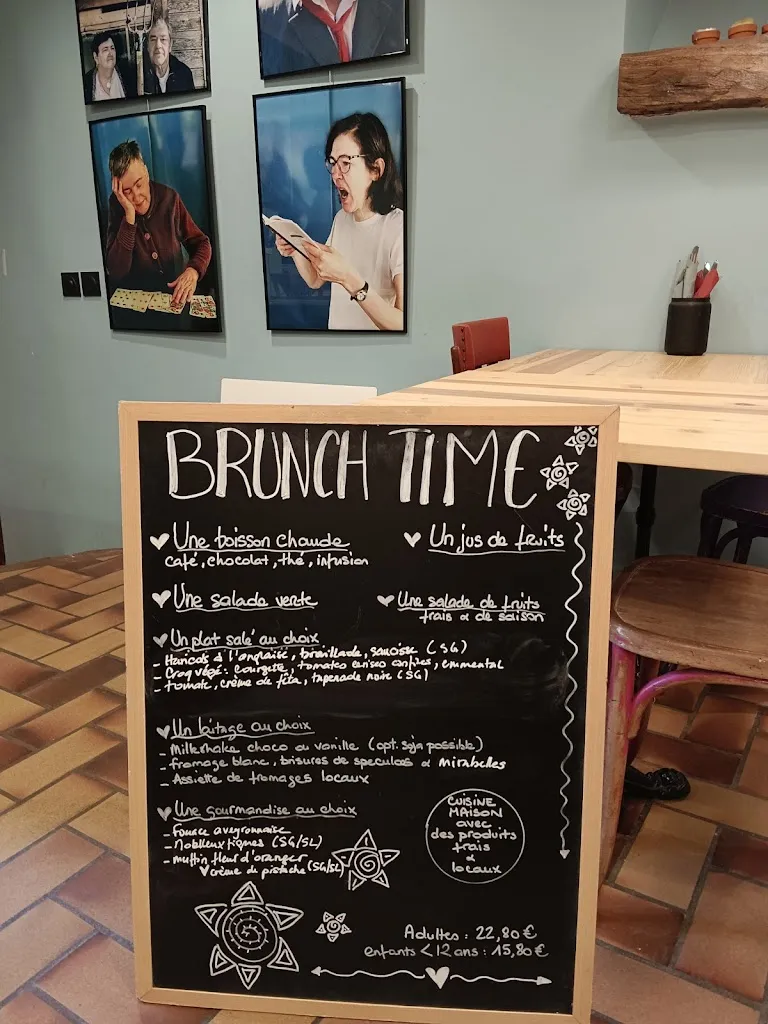 BRUNCH TIME
Une boisson chaude
café, chocolat, thé, infusion
Un jus de fruits
Une salade verte
Une salade de fruits
frais & de saison
Un plat salé au choix
- Haricots à l'anglaise, brouillade, saucisse (SG)
- Croq végé: courgette, tomates cerises confites, emmental
- tomate, crème de féta, tapenade noire (SG)
Un laitage au choix
- Milkshake choco ou vanille (opt. soja possible)
- fromage blanc, brisures de speculos & mirabelles
- Assiette de fromages locaux
Une gourmandise au choix
- Fouace aveyronnaise
- Moelleux figues (SG/SL)
- muffin fleur d'oranger
crème de pistache (SG/SL)
CUISINE
MAISON
avec
des produits
frais
&
locaux
Adultes : 22,80 €
enfants < 12 ans : 15,80 €